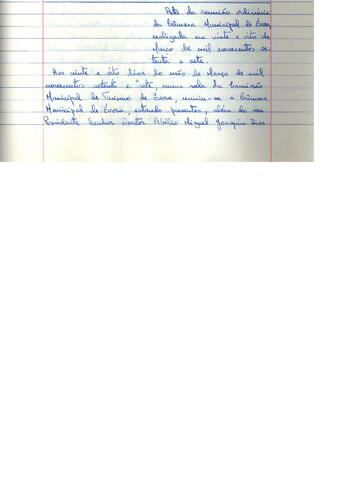 Acta da reunião ordinária
da Câmara Municipal de Évora,
realizada em vinte e oito de
Março de mil novecentos se-
tenta e sete.
Aos vinte e oito dias do mês de Março de mil
novecentos setenta e sete, numa sala da Comissão
Municipal de Turismo de Évora, reuniu-se a Câmara
Municipal de Évora, estando presentes, além do seu
Presidente Senhor Doutor Abílio Miguel Joaquim Dias